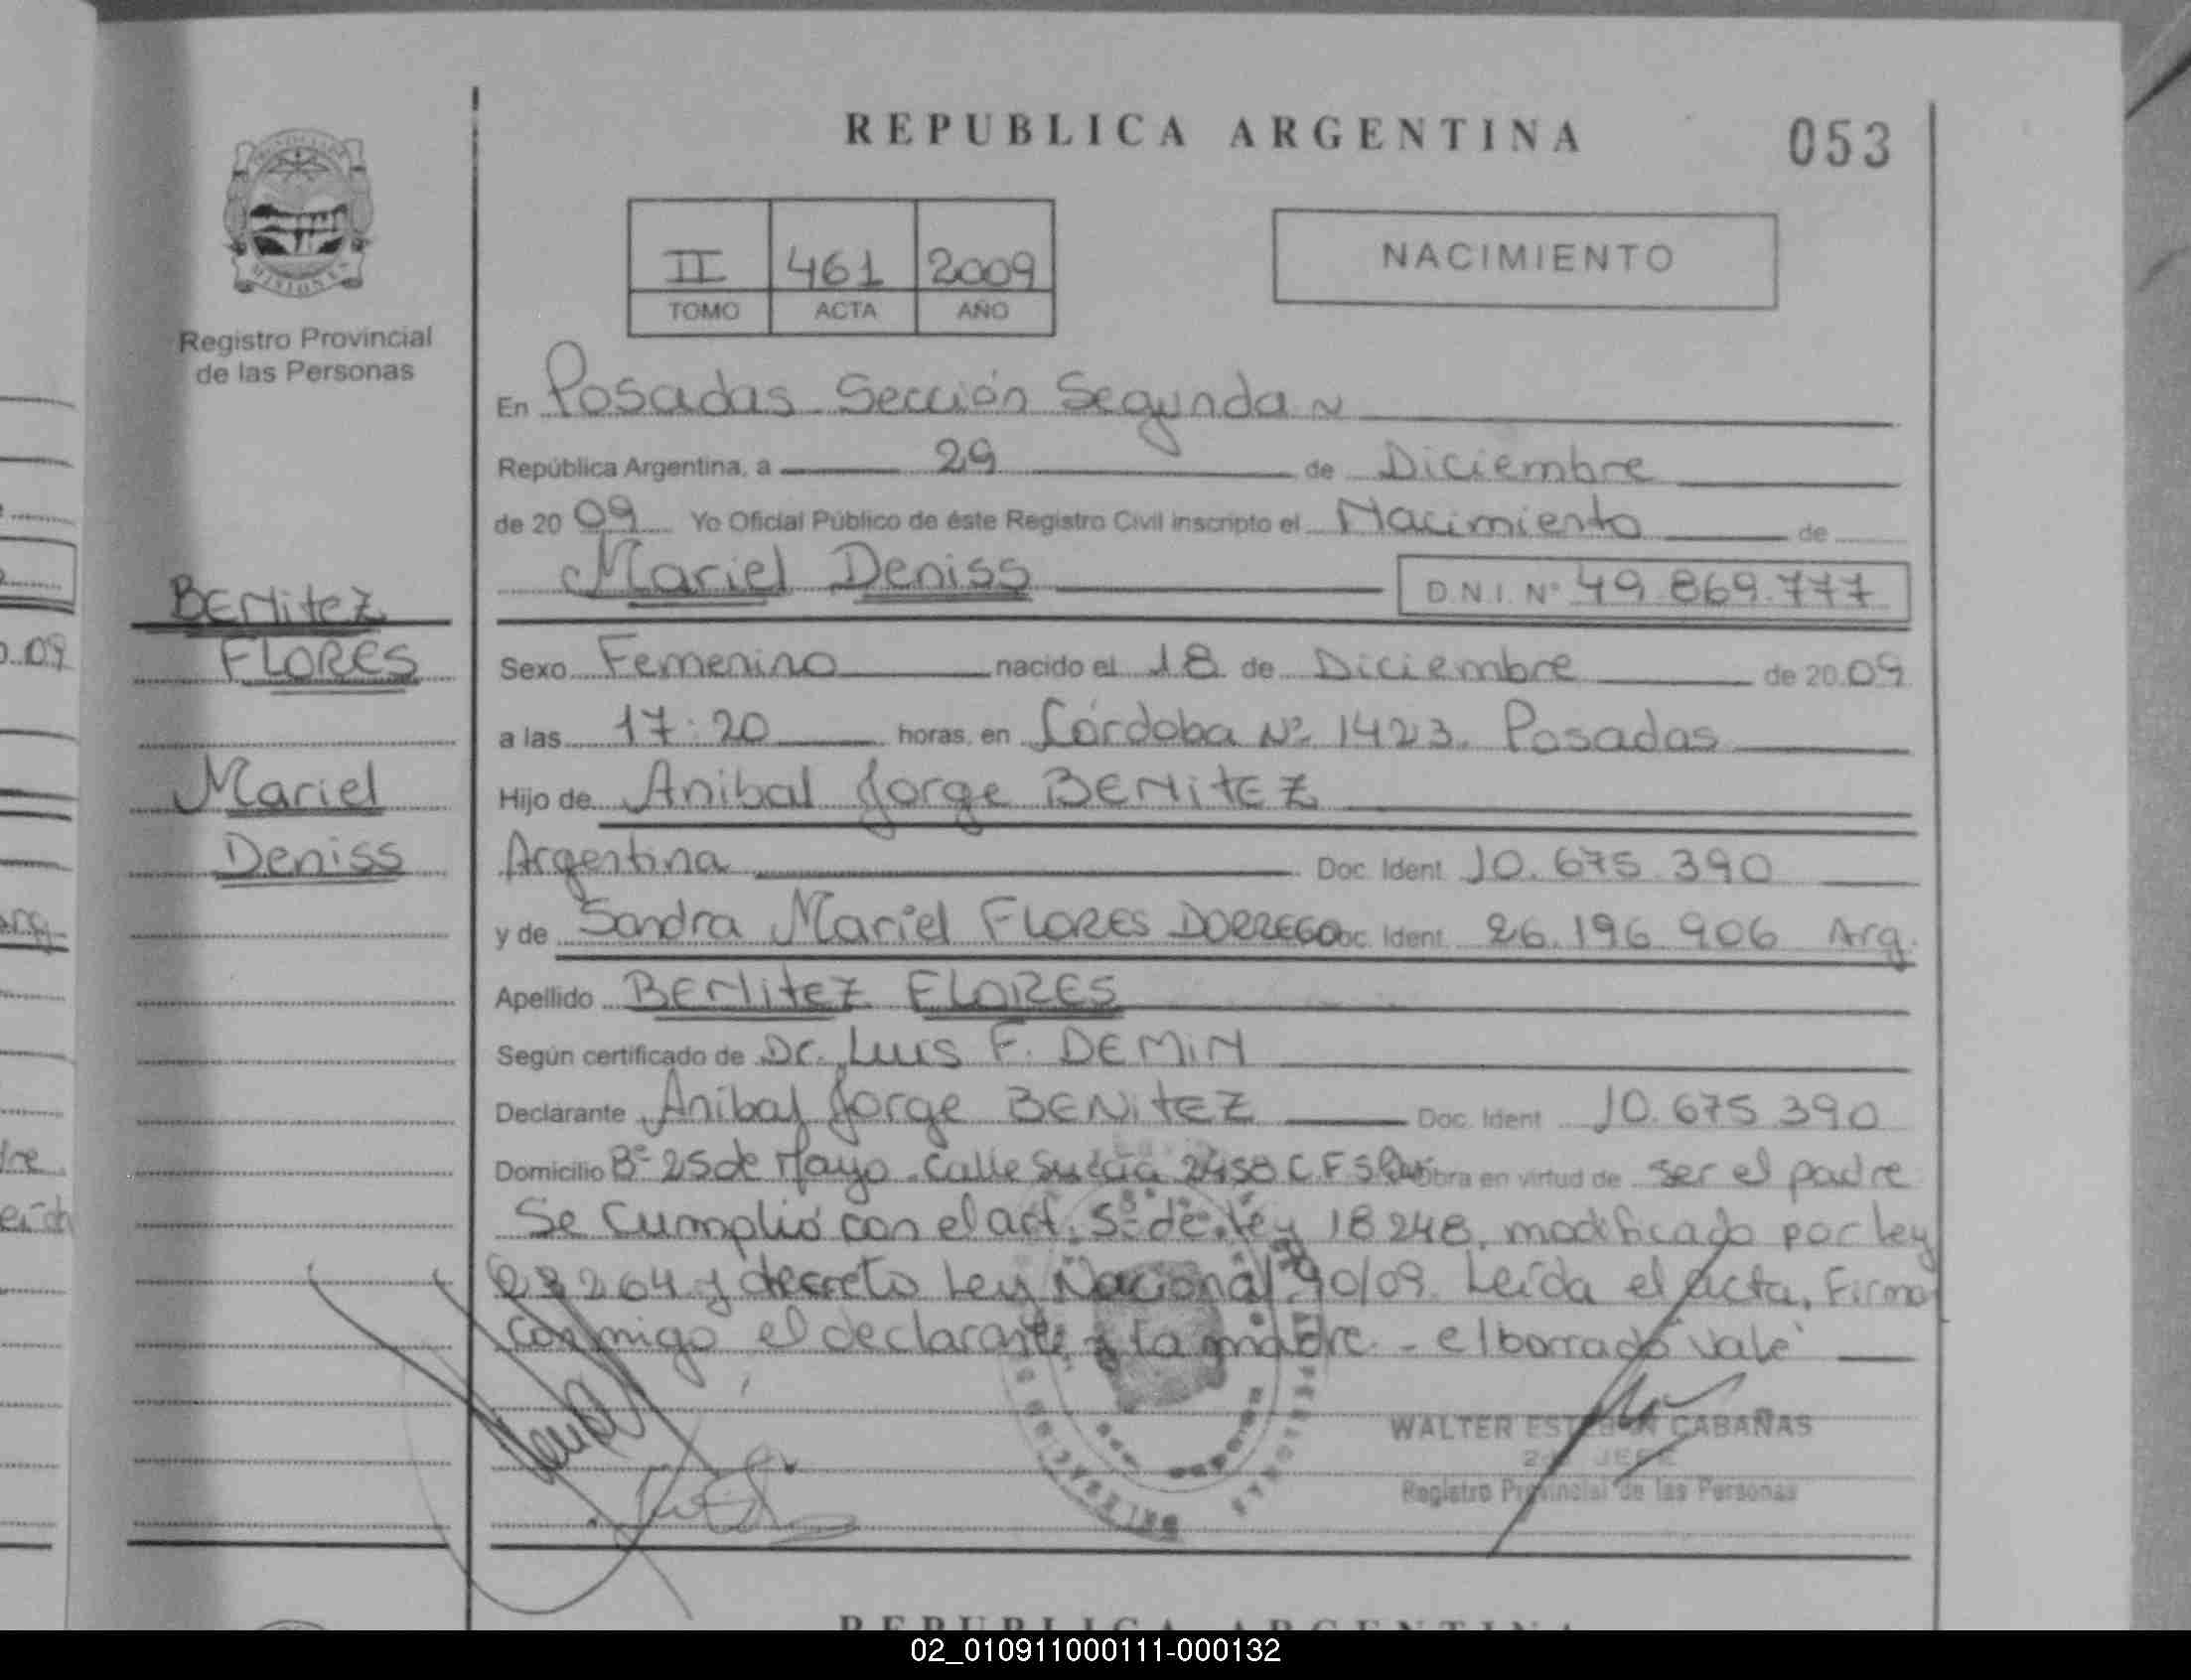 REPUBLICA ARGENTINA
053
II 461 2009
TOMO ACTA AÑO
NACIMIENTO
MISIONES
Registro Provincial
de las Personas
En Posadas Sección Segunda
República Argentina, a 29 de Diciembre
de 20 09 Yo Oficial Público de éste Registro Civil inscripto el Nacimiento de
Mariel Deniss D.N.I. Nº 49.869.777
BENitEZ
FLORES
Mariel
Deniss
Sexo Femenino nacido el 18 de Diciembre de 20 09
a las 17:20 horas, en Córdoba Nº 1423. Posadas
Hijo de Anibal Jorge BENitEZ
Argentina Doc. Ident. 10.675.390
y de Sandra Mariel FLORES DORREGO Doc. Ident. 26.196.906 Arg.
Apellido BENitEZ FLORES
Según certificado de Dr. Luis F. DEMiN
Declarante Anibal Jorge BENitEZ Doc. Ident. 10.675.390
Domicilio Bº 25 de Mayo. Calle Suecia 2458 C.F.S. Obra en virtud de ser el padre
Se Cumplió con el art. 5º de ley 18248, modificado por ley
23264 y decreto Ley Nacional 90/09. Leída el acta, Firma
conmigo el declarante y la madre. - el borrado "vale"
WALTER ESTEBAN CABAÑAS
2do JEFE
Registro Provincial de las Personas
REPUBLICA ARGENTINA
02_010911000111-000132